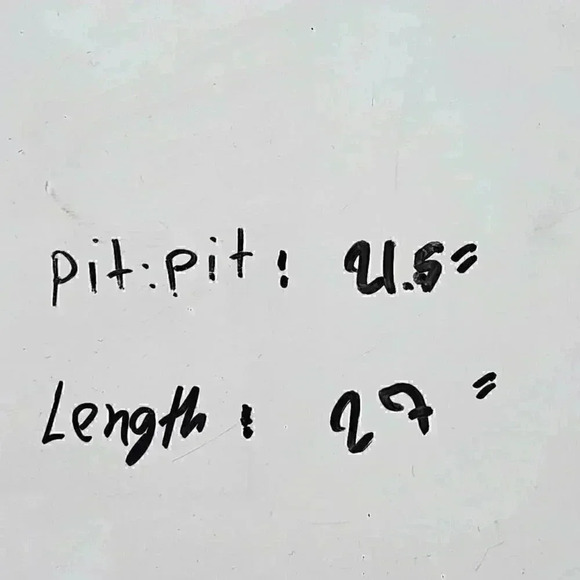 pit:pit: 21.5"
Length: 27"